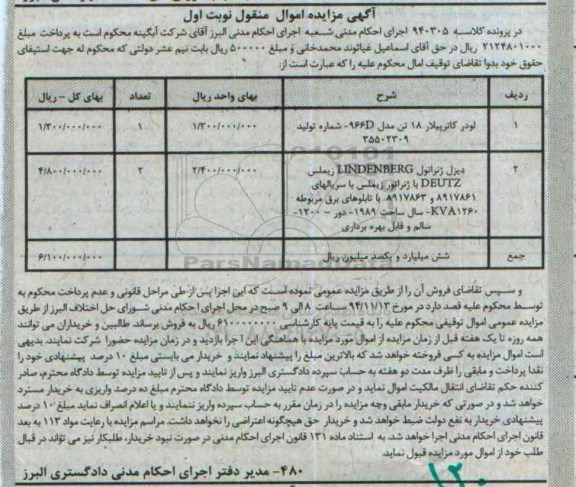 آگهی مزایده اموال منقول نوبت اول
در پرونده کلاسه ۹۴۰۳۰۵ اجرای احکام مدنی شعبه اجرای احکام مدنی البرز آقای شرکت آبگینه محکوم است به پرداخت مبلغ
۲۱۲۴۸۰۱۰۰۰ ریال در حق آقای اسماعیل غیاثوند محمدخانی و مبلغ ۵۰۰۰۰۰ ریال بابت نیم عشر دولتی که محکوم له جهت استیفای
حقوق خود بدوا تقاضای توقیف امال محکوم علیه را که عبارت است از:
ردیف شرح بهای واحد ریال تعداد بهای کل - ریال
۱ لودر کاترپیلار ۱۸ تن مدل ۹۶۶D- شماره تولید ۱/۳۰۰/۰۰۰/۰۰۰ ۱ ۱/۳۰۰/۰۰۰/۰۰۰
۳۵۵۰۲۳۰۹
۲ دیزل ژنراتول LINDENBERG زیملس ۲/۴۰۰/۰۰۰/۰۰۰ ۲ ۴/۸۰۰/۰۰۰/۰۰۰
DEUTZ با ژنراتور زیملس با سریالهای
۸۹۱۷۸۶۱ و ۸۹۱۷۸۶۳ با تابلوهای برق مربوطه
KVA۱۲۶۰- سال ساخت ۱۹۸۹- دور - ۱۲۰۰-
سالم و قابل بهره برداری
جمع شش میلیارد و یکصد میلیون ریال ۶/۱۰۰/۰۰۰/۰۰۰
ParsNamadData
و سپس تقاضای فروش آن را از طریق مزایده عمومی نموده است که این اجرا پس از طی مراحل قانونی و عدم پرداخت محکوم به
توسط محکوم علیه قصد دارد در مورخ ۹۴/۱۱/۱۳ ساعت ۸ الی ۹ صبح در محل اجرای احکام مدنی شورای حل اختلاف البرز از طریق
مزایده عمومی اموال توقیفی محکوم علیه را به قیمت پایه کارشناسی ۶۱۰۰۰۰۰۰۰۰ ریال به فروش برساند. طالبین و خریداران می توانند
همه روزه تا یک هفته قبل از زمان مزایده از اموال مورد مزایده با هماهنگی این اجرا بازدید و در زمان مزایده حضورا شرکت نمایند. بدیهی
است اموال مزایده به کسی فروخته خواهد شد که بالاترین مبلغ را پیشنهاد نمایند و خریدار می بایستی مبلغ ۱۰ درصد پیشنهادی خود را
نقدا پرداخت و مابقی را ظرف مدت دو هفته به حساب سپرده دادگستری البرز واریز نمایند و پس از تایید مزایده توسط دادگاه محترم، صادر
کننده حکم تقاضای انتقال مالکیت اموال نماید و در صورت عدم تایید مزایده توسط دادگاه محترم مبلغ ده درصد واریزی به خریدار مسترد
خواهد شد و در صورتی که خریدار مابقی وجه مزایده را در زمان مقرر به حساب سپرده واریز ننمایند و یا اعلام انصراف نماید مبلغ ۱۰ درصد
پیشنهادی خریدار به نفع دولت ضبط خواهد شد و خریدار حق هیچگونه اعتراضی را نخواهد داشت. مراسم مزایده با رعایت مواد ۱۱۳ به بعد
قانون اجرای احکام مدنی اجرا خواهد شد. به استناد ماده ۱۳۱ قانون اجرای احکام مدنی در صورت نبود خریدار، طلبکار نیز می تواند در قبال
طلب خود از اموال مورد مزایده قبول نماید.
۴۸۰- مدیر دفتر اجرای احکام مدنی دادگستری البرز